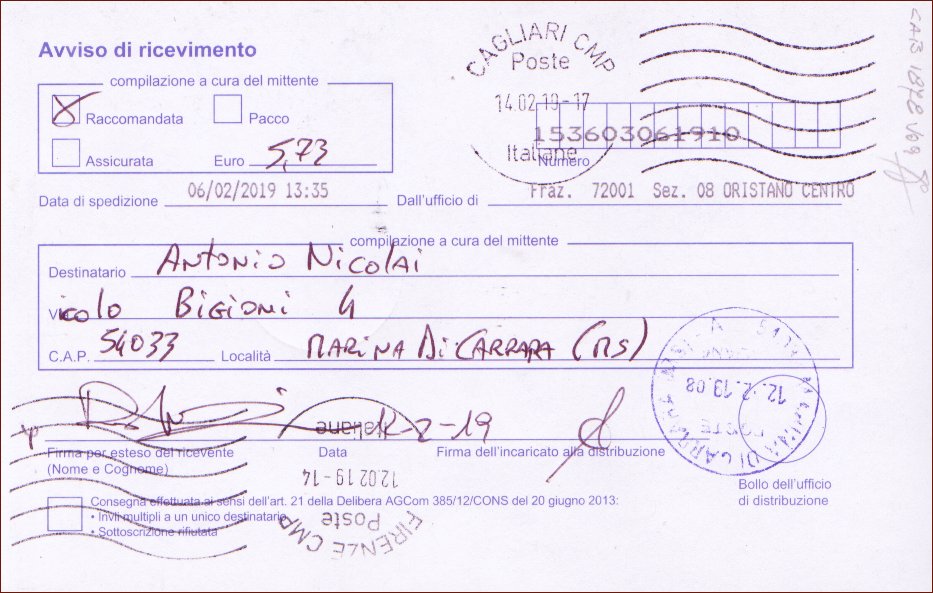 Avviso di ricevimento
compilazione a cura del mittente
Raccomandata Pacco
Assicurata Euro 5,73
CAGLIARI CMP
Poste
14.02.19-17
Italiane
153603061910
Numero
Data di spedizione 06/02/2019 13:35 Dall'ufficio di Fraz. 72001 Sez. 08 ORISTANO CENTRO
compilazione a cura del mittente
Destinatario Antonio Nicolai
vicolo Bigioni 4
C.A.P. 54033 Località MARINA Di CARRARA (MS)
12.2.19.08
-2-19
Firma per esteso del ricevente
(Nome e Cognome)
Data
Firma dell'incaricato alla distribuzione
Bollo dell'ufficio
di distribuzione
Italiane
12.02 19-14
Poste
FIRENZE CMP
Consegna effettuata ai sensi dell'art. 21 della Delibera AGCom 385/12/CONS del 20 giugno 2013:
• Invii multipli a un unico destinatario
• Sottoscrizione rifiutata